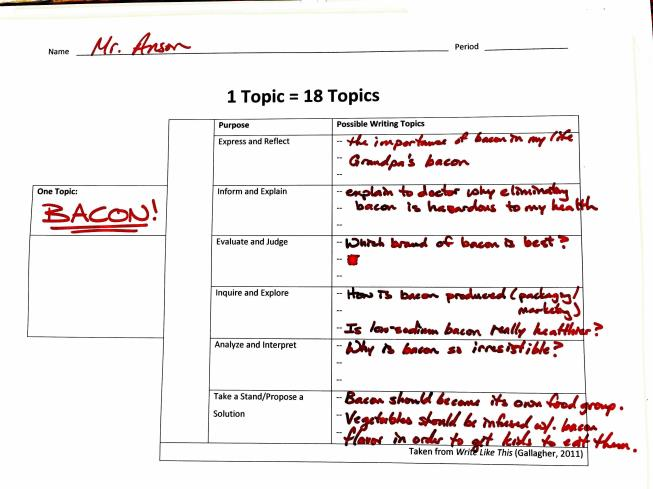 Name Mr. Anson Period
1 Topic = 18 Topics
Purpose Possible Writing Topics
Express and Reflect -- the importance of bacon in my life
-- Grandpa's bacon
--
One Topic:
BACON!
Inform and Explain -- explain to doctor why eliminating
bacon is hazardous to my health
--
Evaluate and Judge -- Which brand of bacon is best?
--
--
Inquire and Explore -- How is bacon produced (packaging/
marketing)
-- Is low-sodium bacon really healthier?
Analyze and Interpret -- Why is bacon so irresistible?
--
--
Take a Stand/Propose a
Solution
-- Bacon should become its own food group.
-- Vegetables should be infused w/. bacon
-- flavor in order to get kids to eat them.
Taken from Write Like This (Gallagher, 2011)